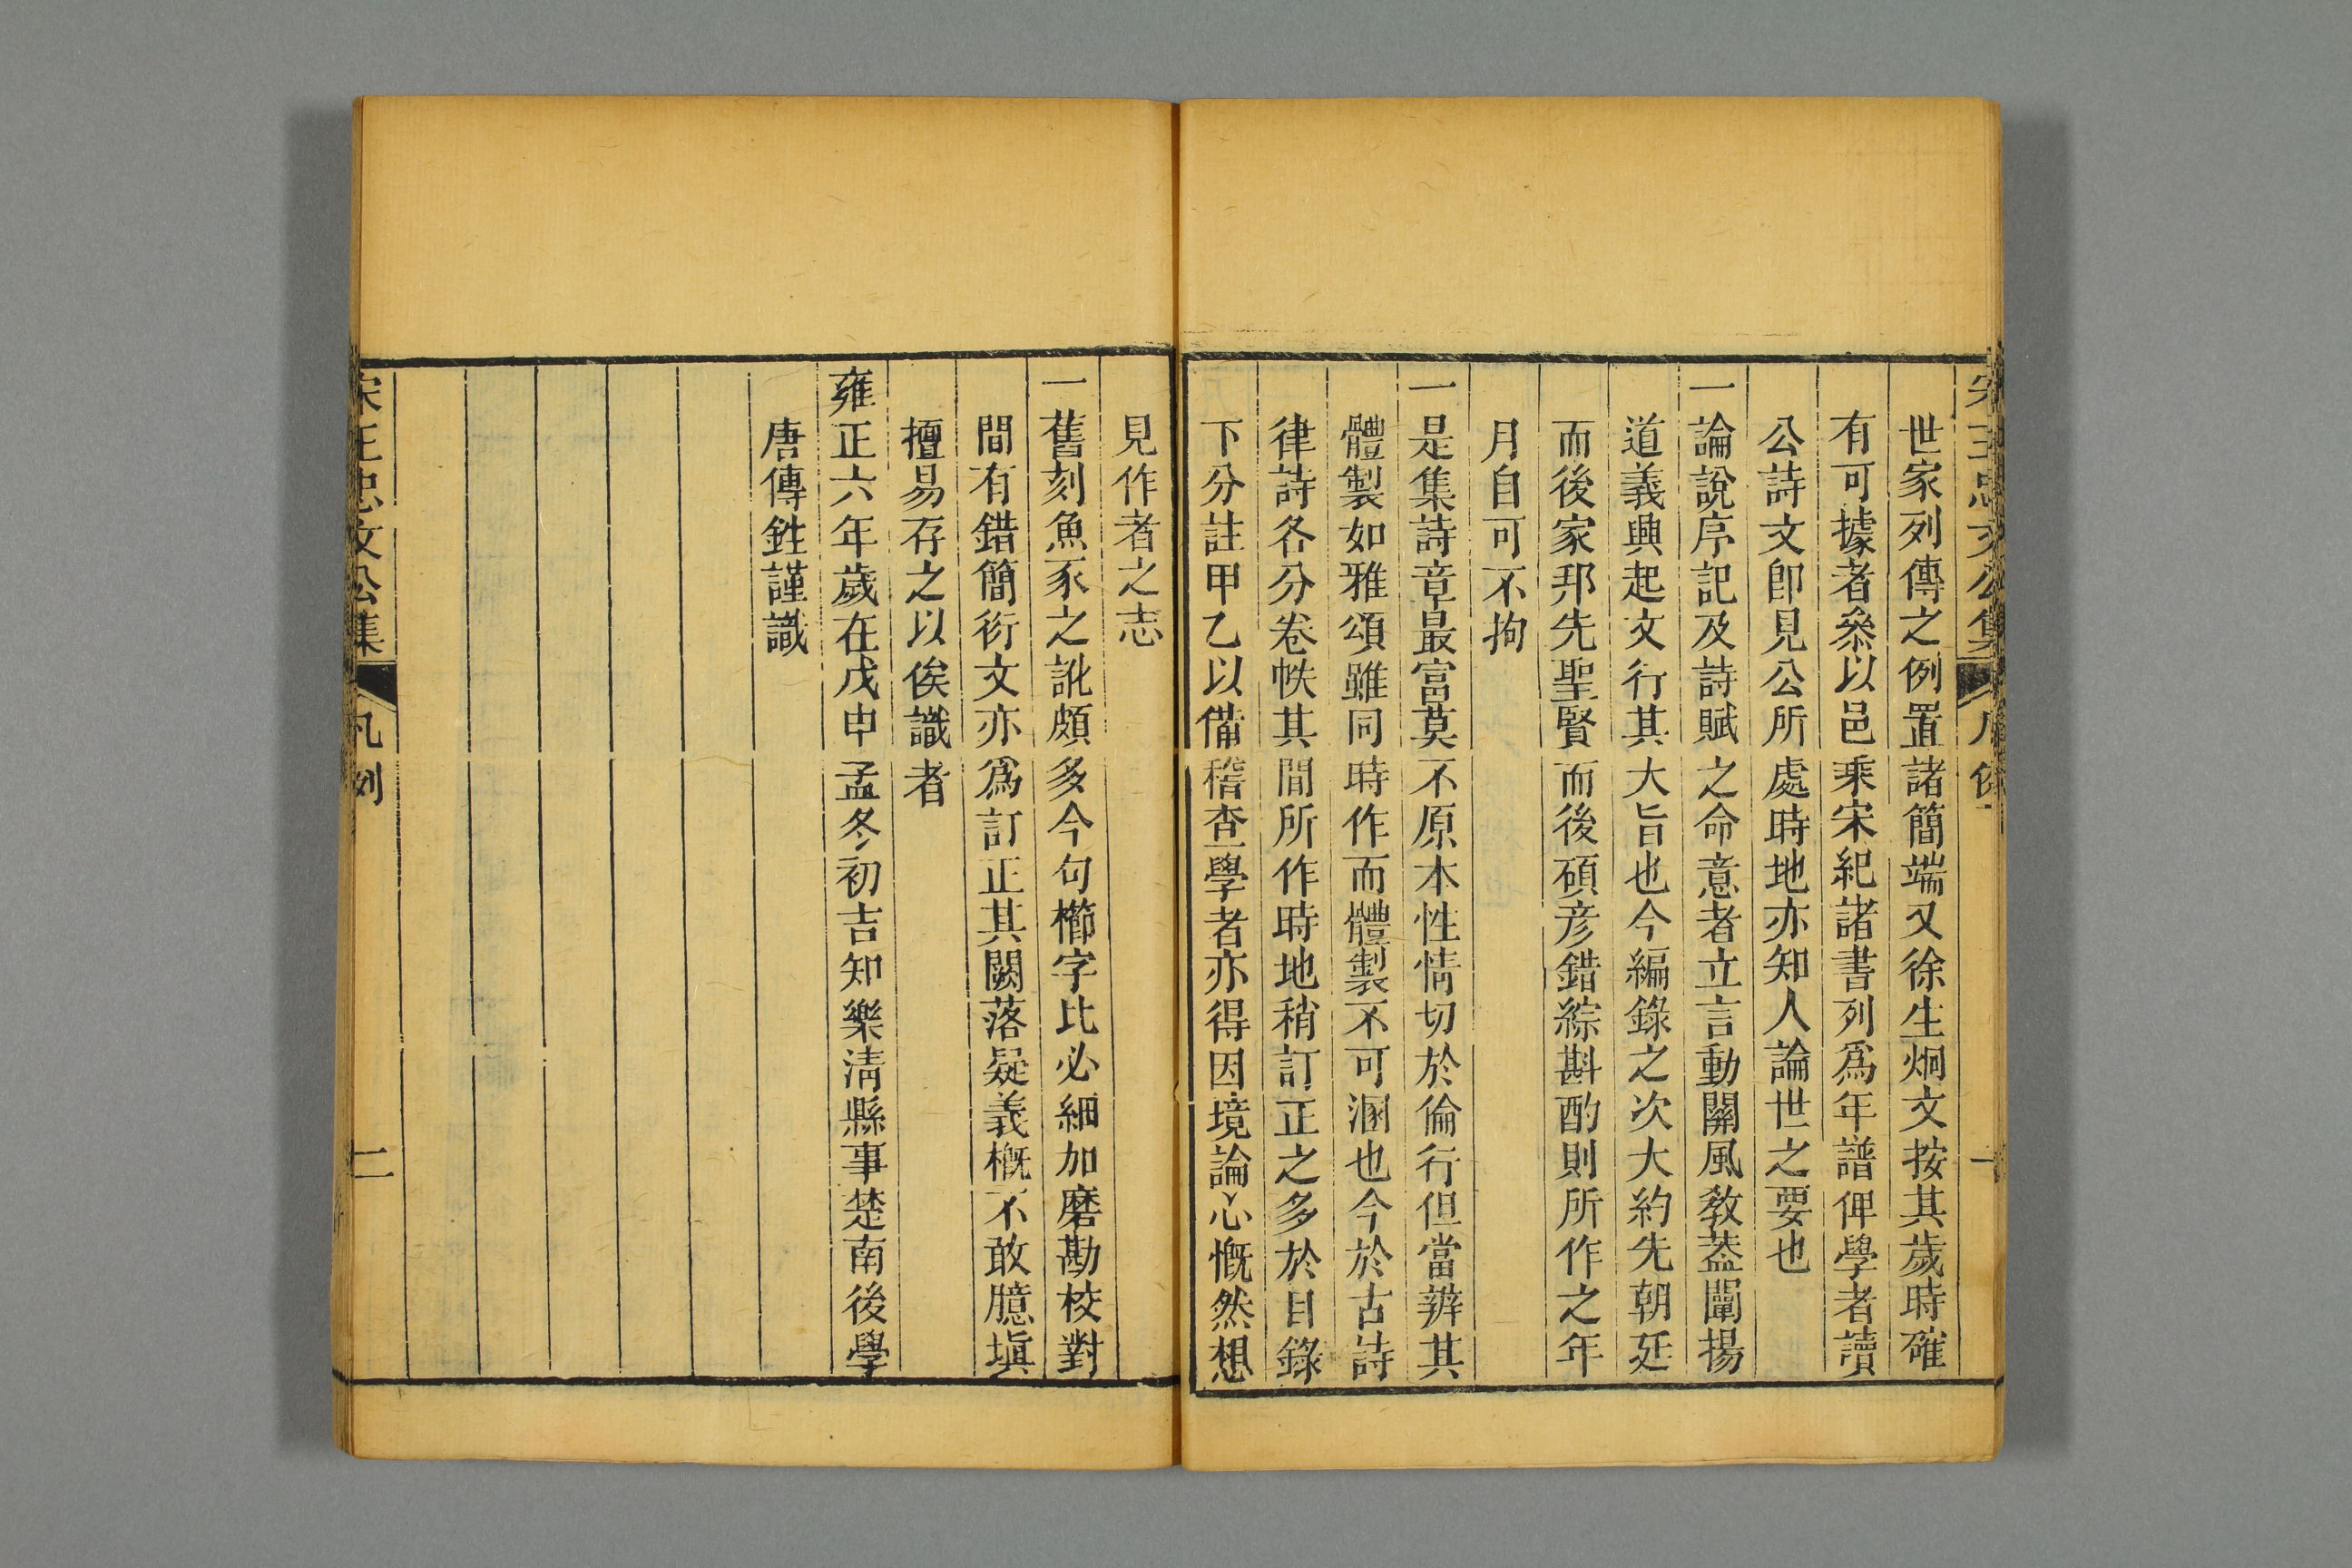 世家列傳之例置諸簡端又徐生炯文按其歲時確
有可據者叅以邑乘宋紀諸書列爲年譜俾學者讀
公詩文卽見公所處時地亦知人論世之要也
一論說序記及詩賦之命意者立言動關風敎葢闡揚
道義興起文行其大旨也今編錄之次大約先朝廷
而後家邦先聖賢而後碩彥錯綜斟酌則所作之年
月自可不拘
一是集詩章最富莫不原本性情切於倫行但當辨其
體製如雅頌雖同時作而體製不可溷也今於古詩
律詩各分卷帙其間所作時地稍訂正之多於目錄
下分註甲乙以備稽查學者亦得因境論心慨然想
見作者之志
一舊刻魚豕之訛頗多今句櫛字比必細加磨勘校對
間有錯簡衍文亦爲訂正其闕落疑義槪不敢臆塡
擅易存之以俟識者
雍正六年歲在戊申孟冬初吉知樂淸縣事楚南後學
唐傳鉎謹識
宋王忠文公集
凡例
二